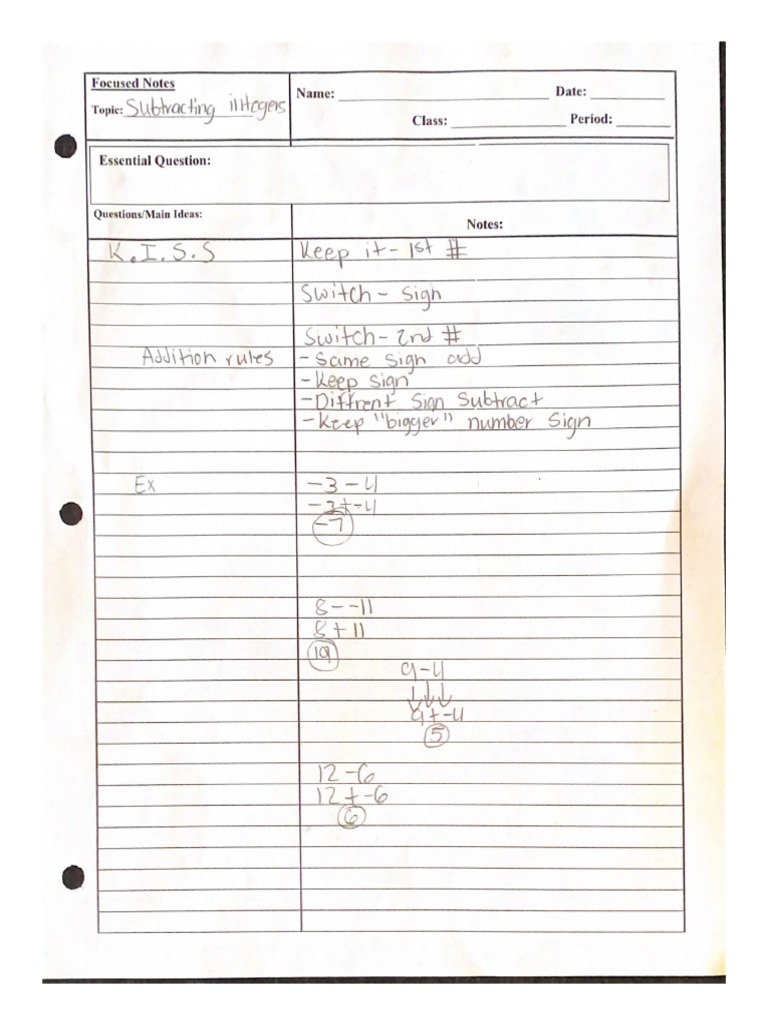 Focused Notes
Topic: Subtracting integers
Name: Date:
Class: Period:
Essential Question:
Questions/Main Ideas:
Notes:
K.I.S.S Keep it - 1st #
Switch - Sign
Switch - 2nd #
Addition rules - Same Sign add
- Keep Sign
- Diffrent Sign Subtract
- Keep "bigger" number Sign
Ex -3-4
-3+-4
-7
8--11
8+11
19
9-4
↓↓↓
9+-4
5
12-6
12+-6
6